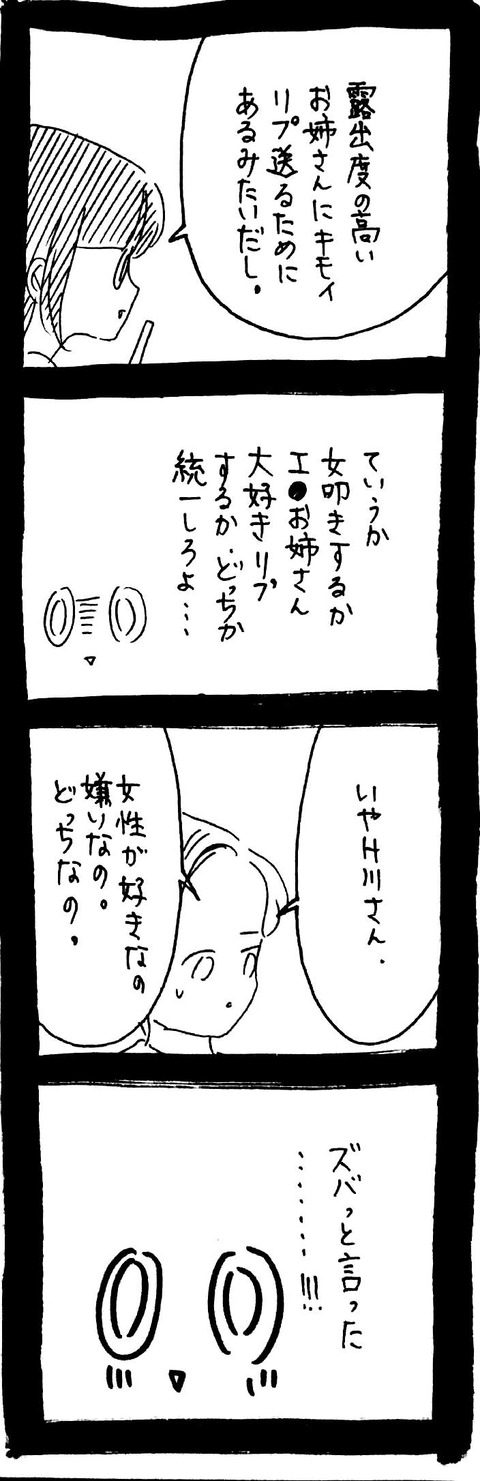 露出度の高い
お姉さんにキモイ
リプ送るために
あるみたいだし。
ていうか
女叩きするか
エ●お姉さん
大好きリプ
するか、どっちか
統一しろよ…
いやH川さん.
女性が好きなの
嫌いなの。
どっちなの。
ズバっと言った
………!!!